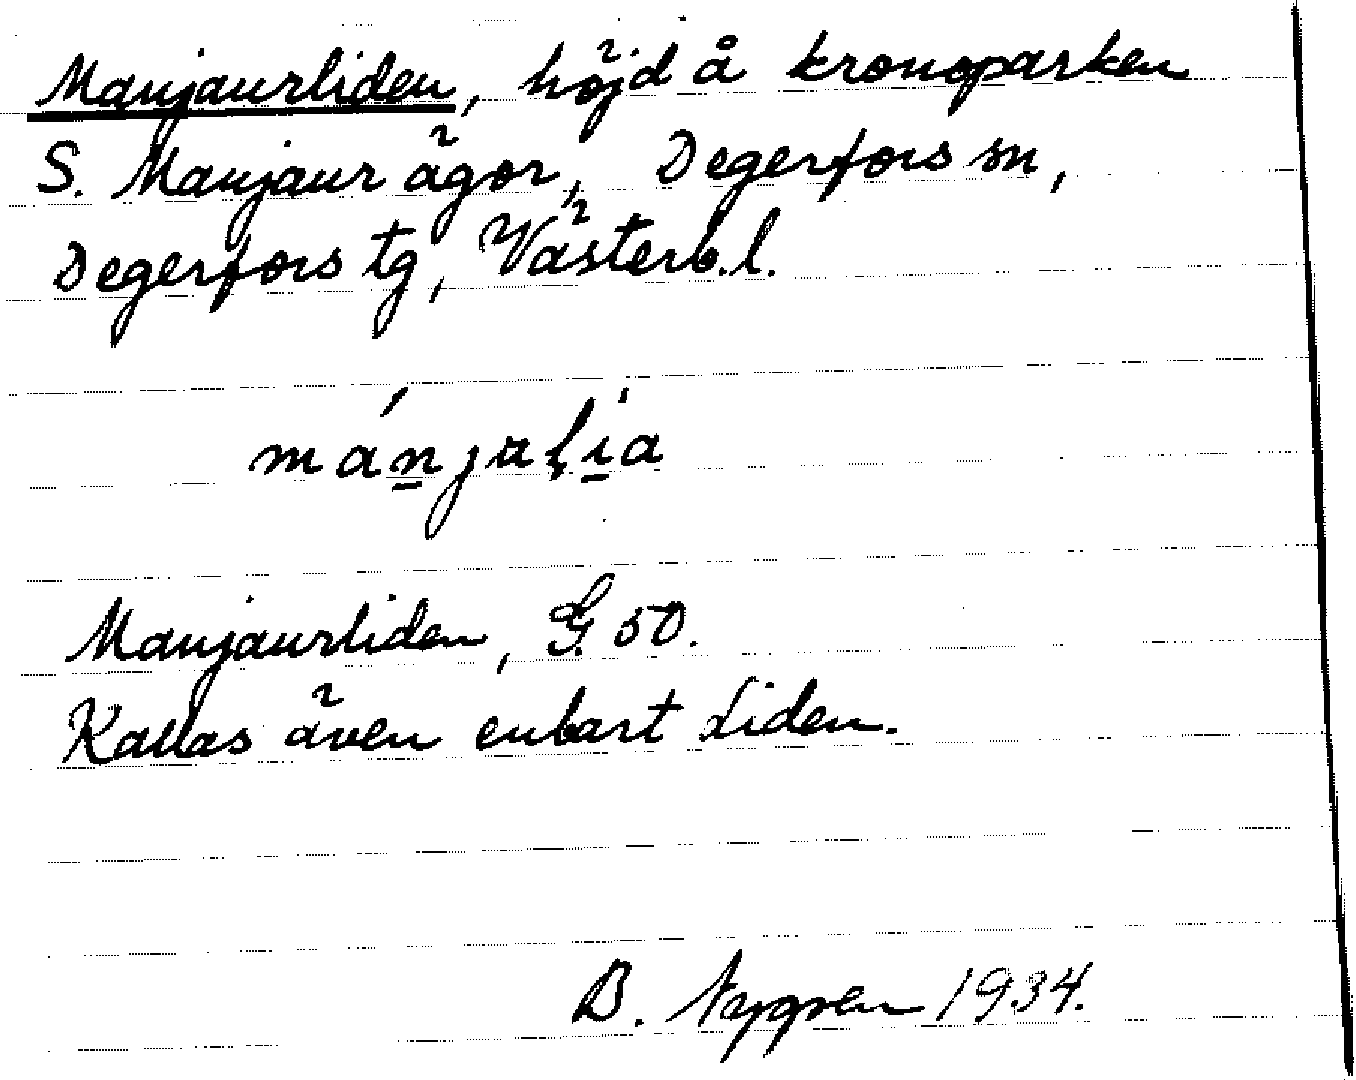 Manjaurliden, höjd å kronoparken
S. Manjaur ägor, Degerfors sn,
Degerfors tg, Västerb.l.
mánjaḷia
Manjaurliden, G. 50.
Kallas även enbart Liden.
B. Nygren 1934.